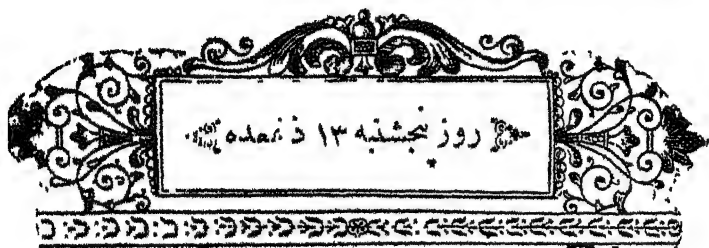 روز پنجشنبه ۱۳ ذیقعده